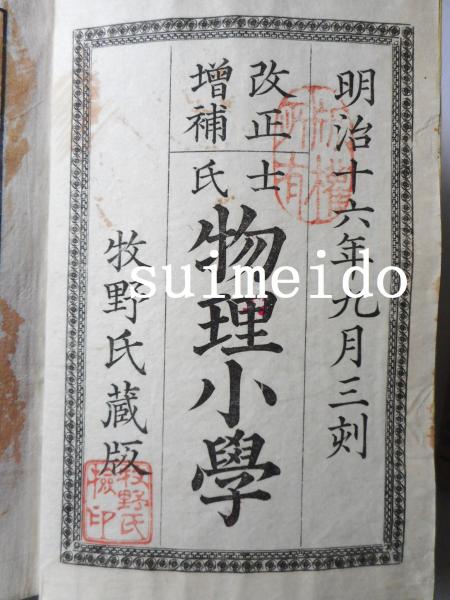 明治十六年九月三刻
改正
增補
士氏
物理小學
牧野氏蔵版
版權所有
牧野氏檢印
suimeido